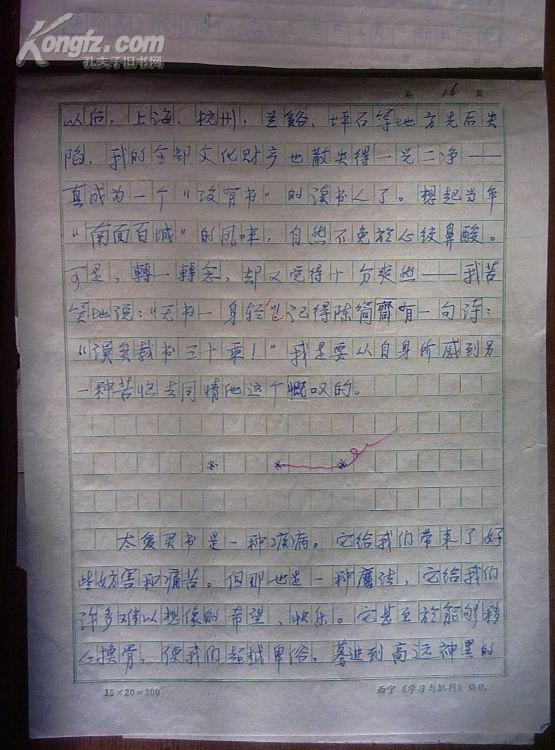 Kongfz.com
孔夫子旧书网
第 16 页
以后，上海，杭州，兰谿、坪石等地方先后失
陷，我的全部文化财产也散失得一光二净——
真成为一个“没有书”的读书人了。想起当年
“南面百城”的风味，自然不免於心绞鼻酸。
可是，轉一轉念，却又觉得十分爽然——我苦
笑地说：“无书一身轻！”记得陈简齋有一句诗：
“误矣载书三十乘！”我是要从自身所感到另
一种苦恼去同情他这个慨叹的。
* * *
太爱买书是一种痼病。它给我们带来了好
些妨害和痛苦。但那也是一种魔法，它给我们
许多难以想像的希望、快乐。它甚至於能够移
心换骨，使我们超越卑俗，蓦进到高远神异的
15×20=300
西宁《学习与批判》稿纸